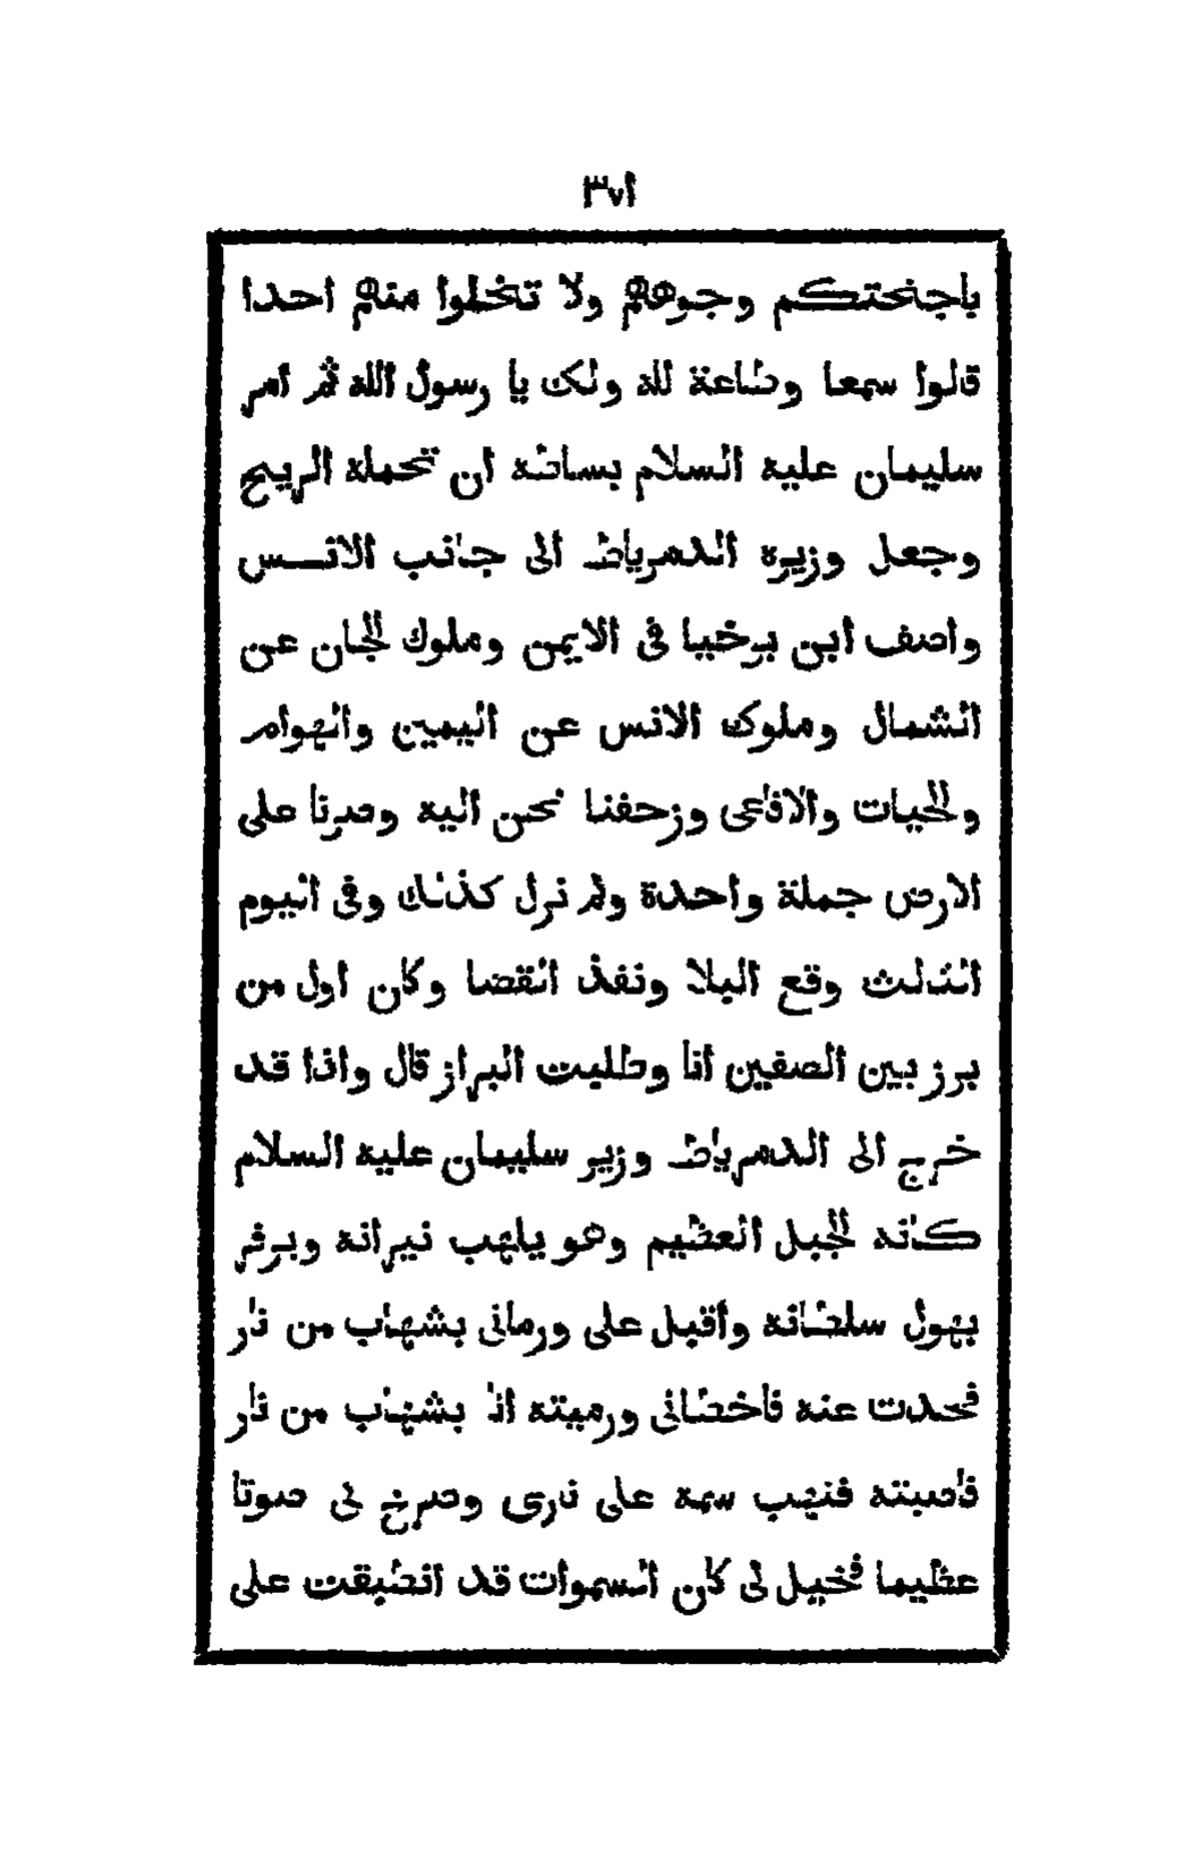 ٣٧١
باجنحتكم وجوههم ولا تخطوا منهم احدا
قالوا سمعا وطاعة لله ولك يا رسول الله ثم امر
سليمان عليه السلام بساطه ان تحمله الريح
وجعل وزيره الدمرياط الى جانب الانس
واصف ابن برخيا فى الايمن وملوك الجان عن
الشمال وملوك الانس عن اليمين والهوام
والحيات والافاعى وزحفنا نحن اليه وصرنا على
الارض جملة واحدة ولم نزل كذلك وفى اليوم
الثالث وقع البلا ونفذ القضا وكان اول من
برز بين الصفين انا وطلبت البراز قال واذا قد
خرج الى الدمرياط وزير سليمان عليه السلام
كانه الجبل العظيم وهو يلهب نيرانه ويرفر
بهول سلطانه واقبل على ورمانى بشهاب من نار
فحدت عنه فاخطانى ورميته انا بشهاب من نار
فاصبته فنهب سهه على نارى وصرخ لى صوتا
عظيما فخيل لى كان السموات قد انطبقت على